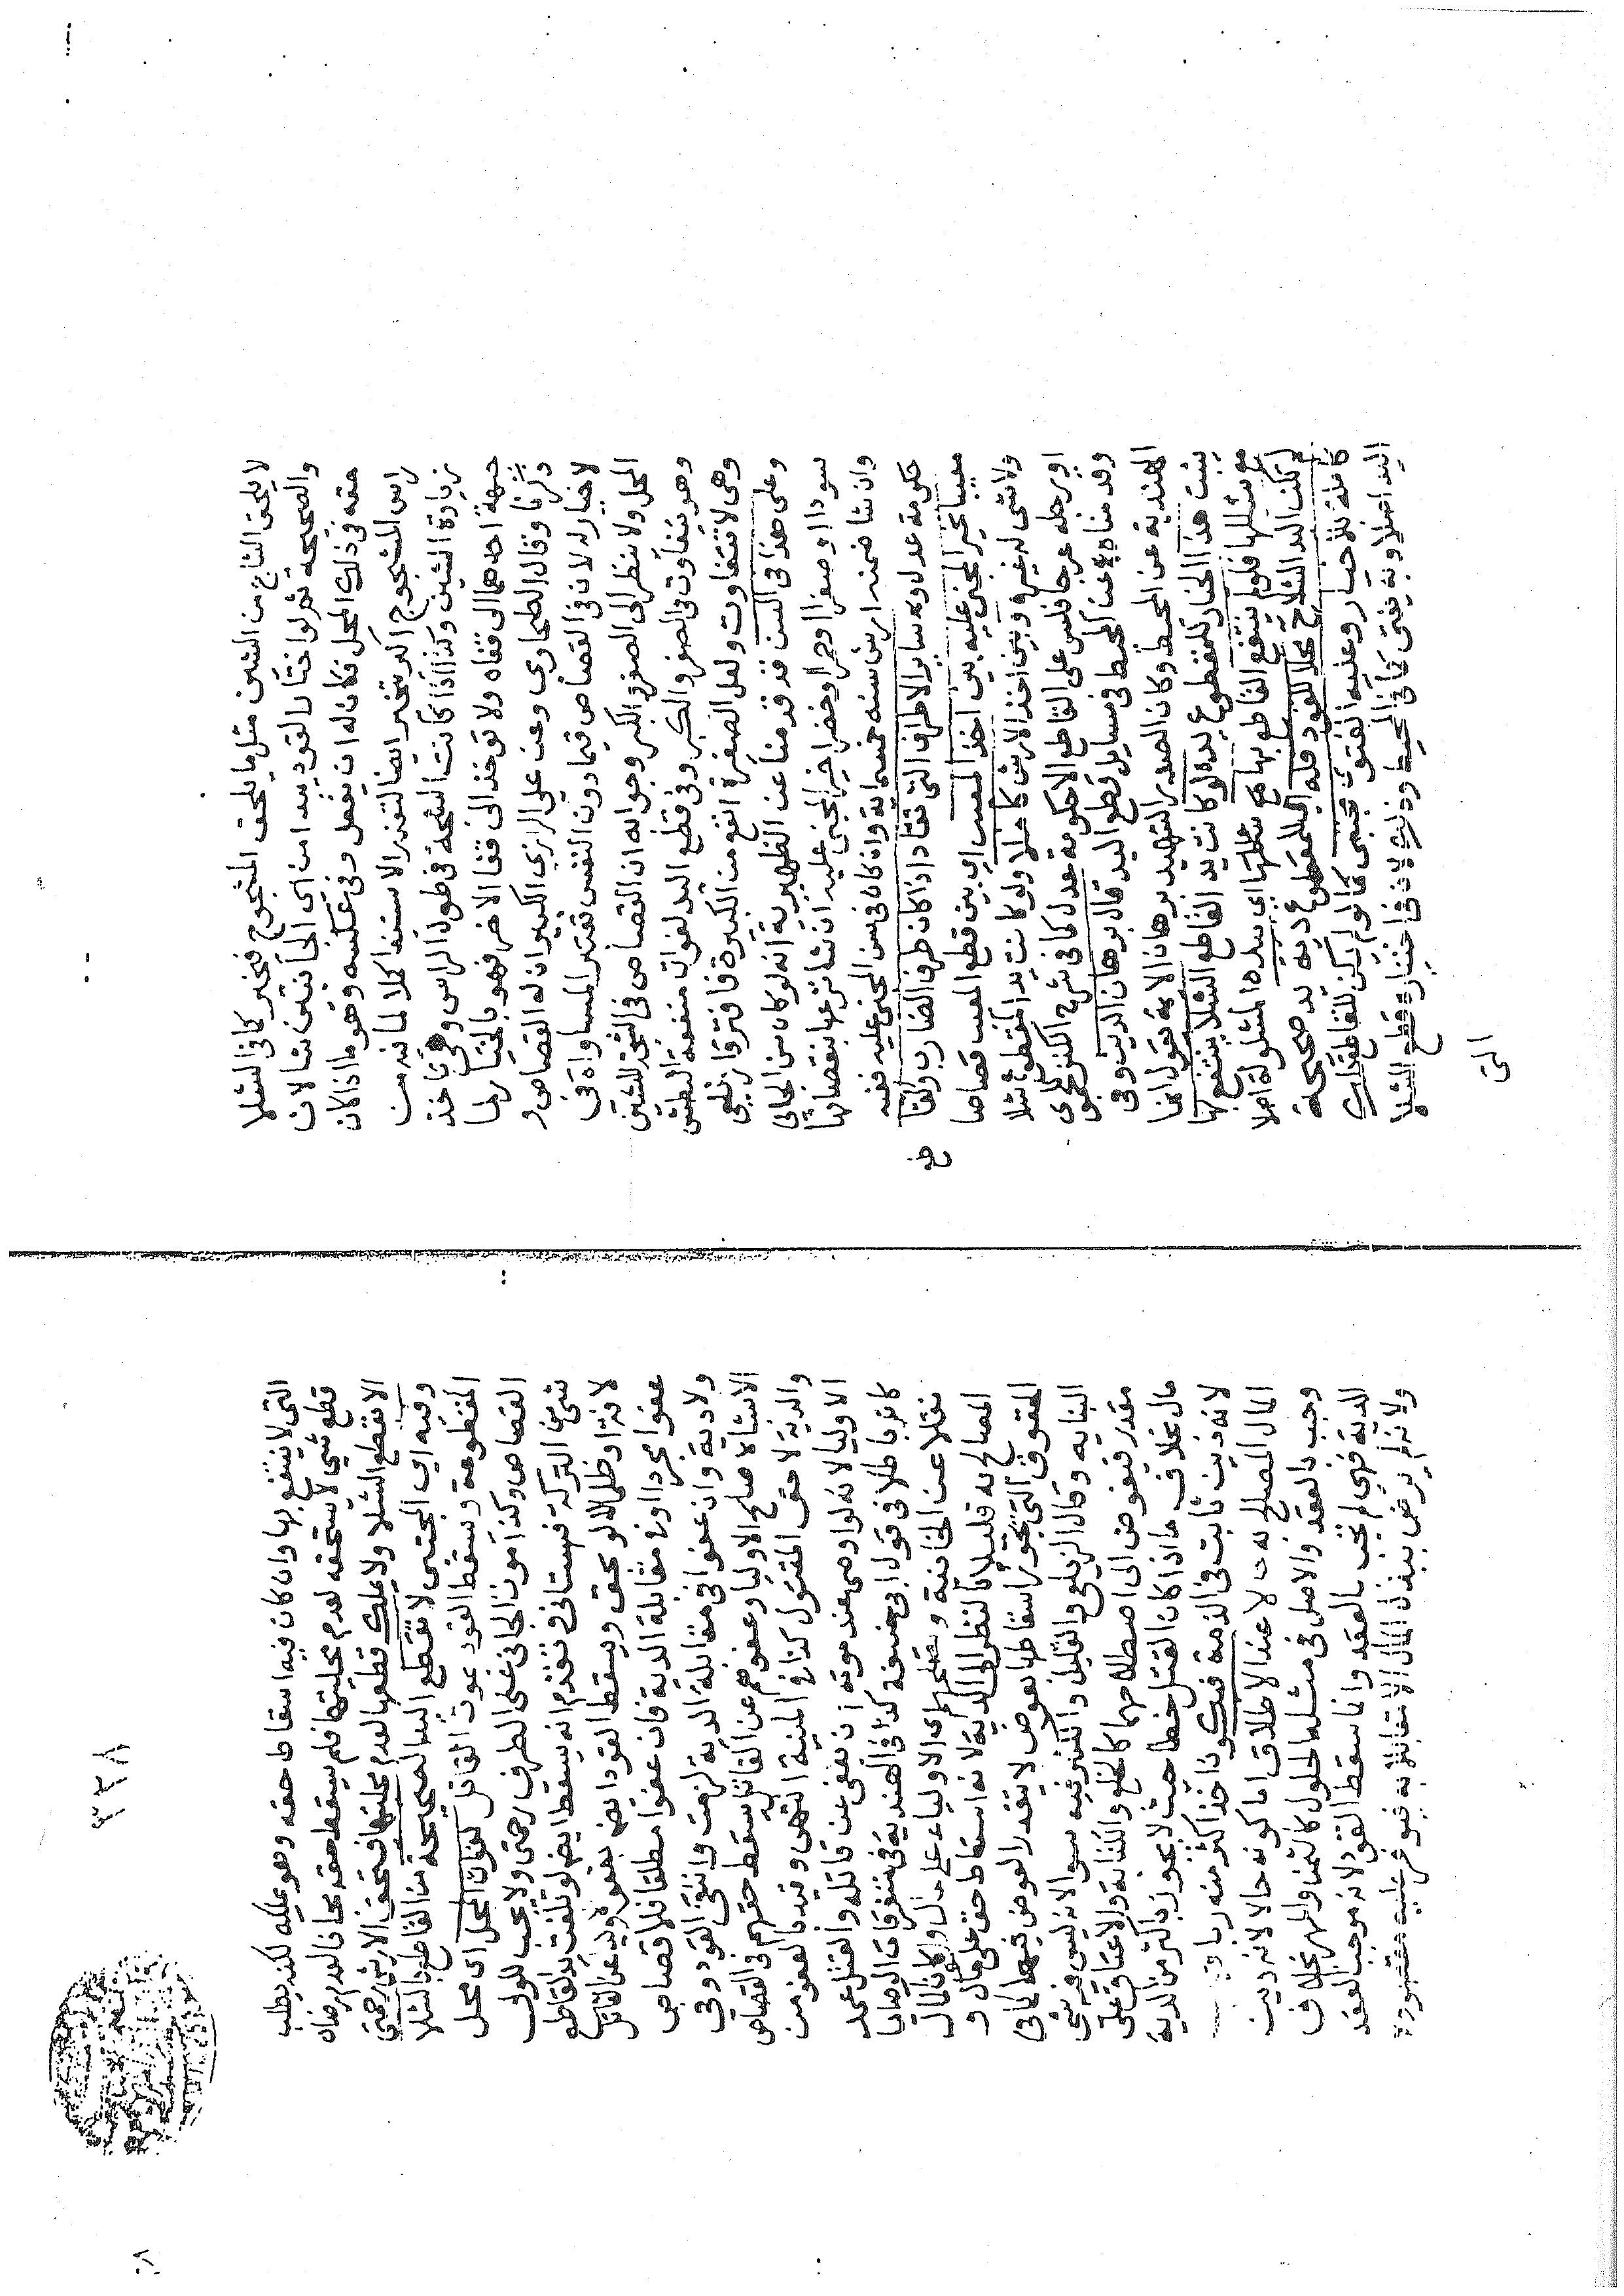 لا يلحق الشاج من الشين مثل ما يلحق المشجوج فيخير كما في الشلا
والصحيحة ثم لو اختار القود يبدا من اي الجانبين شا لان
حقه في ذلك المحل فكان له ان يفعل وفي عكسه وهو ما اذا كان
راس المشجوج اكبر يتخير ايضا لتعذر الاستيفا كملا لما فيه من
زيادة الشين وكذا اذا كانت الشجة في طول الراس وهي تاخذ
جبهة احدهما الى قفاه ولا تاخذ الى قفا الاخر فهو بالخيار لما
ذكرنا وقال الطحاوي وعن علي الرازي الكبير ان له القصاص و
لا خيار له لان في القصاص فيما دون النفس تعتبر المساواة في
المحل ولا ينظر الى الصغر والكبر وجوابه ان القصاص في الشجة للشين
وهو يتفاوت في الصغر والكبر وفي قطع اليد لفوات منفعة البطش
وهي لا تتفاوت ولعل الصغيرة انفع من الكبيرة فافترقا زيلعي
وعلى هذا في السن قد قدمنا عن الظهيرية انه لو كان سن الجاني
سودا او صفرا او حمرا او خضرا خير المجني عليه ان شا نزعها بنقصانها
وان شا ضمنه ارش سنه خمسماية وان كان في سن المجني عليه ففيه
حكومة عدل وبه ساير الاطراف التي تقاد اذا كان طرف الضارب والقاطع
معيبا يخير المجني عليه بين اخذ المعيب اي بين قطع المعيب قصاصا
ولا شي له غيره وبين اخذ الارش كاملا ولو كانت يد المقطوع شلا
او برجله عرجا فليس على القاطع الا حكومة عدل كما في شرح الكنز للحموي
وقدمناه عن المحيط في مسايل قطع اليد قال برهان الدين وفي
الهندية عن المحيط وكان الصدر الشهيد برهان الايمة يقول انما
يثبت هذا الخيار للمقطوع يده لو كانت يد القاطع الشلا ينتفع بها
مع شللها فلو لم ينتفع القاطع بها مع شللها اي بيده المشلولة اصلا
لم تكن اليد الشلا ح محلا للقود فله اي للمقطوع دية يد صحيحة
كاملة بلا خيار وعليه الفتوى مجتبى كما لو لم يكن للقاطع تلك
اليد اصلا وبه يفتى كما في المحيط وذلك لان في اختياره قطع الشلا
التي
التي لا ينتفع بها وان كان فيه اسقاط حقه وهو يملكه لكنه يطلب
قطع شي لا يستحقه لعدم محليتها فلم يسقط حقه مجانا لعدم رضاه
الا بقطع الشلا ولا يملك قطعها لعدم محليتها فتحقق الارش رحمتي
وفيه اي المجتبى لا تقطع اليد الصحيحة من القاطع بالشلا
المقطوعة ويسقط القود بموت القاتل لفوات المحل اي محل
القصاص وكذا موت الجاني على الطرف رحمتي ولا يجب للولي
شي من التركة قهستاني وتقدم انه يسقط ايض لو تلفت يد القاطع
لافة او ظلما لا لو بحق ويسقط القود ايض بعفو الاوليا عن القاتل
عفوا مجردا او في مقابلة الدية فان عفوا مطلقا فلا قصاص
ولا دية وان عفوا في مقابلة الدية لزمت وانتفى القود وفي
الاشباه صلح الاوليا وعفوهم عن القاتل يسقط حقهم في القصاص
والدية لا حق المقتول كذا في المنية انتهى وقيد بالعفو من
الاوليا لانه لو اوصى عند موته ان يعفى عن قاتله والقتل عمد
كان باطلا في قول ابي حنيفة كذا في الهندية في متفرقات الوصايا
نقلا عن الخانية وبصلحهم اي الاولياء على مال ولو كان المال
المصالح به قليلا بالنظر الى الدية لانه اسقاط حق على مال و
الحقوق التي يجوز اسقاطها بعوض لا يتقدر العوض فيها كما في
البناية وقال الزيلعي والقليل والكثير فيه سوا لانه ليس فيه شي
مقدر فيفوض الى اصطلاحهما كالخلع والكتابة والاعتاق على
مال بخلاف ما اذا كان القتل خطا حيث لا يجوز باكثر من الدية
لانه دين ثابت في الذمة فيكون اخذ اكثر منه ربا
المال المصالح به لا عند الاطلاق اما كونه حالا لانه دين
وجب بالعقد والاصل في مثله الحلول كالثمن والمهر بخلاف
الدية فهي لم تجب بالعقد وانما سقط القود لانه موجب العقد
ولانه لم يرض ببذل المال الا بمقابلته به فيوفر عليه مقصوده
٣٣٨